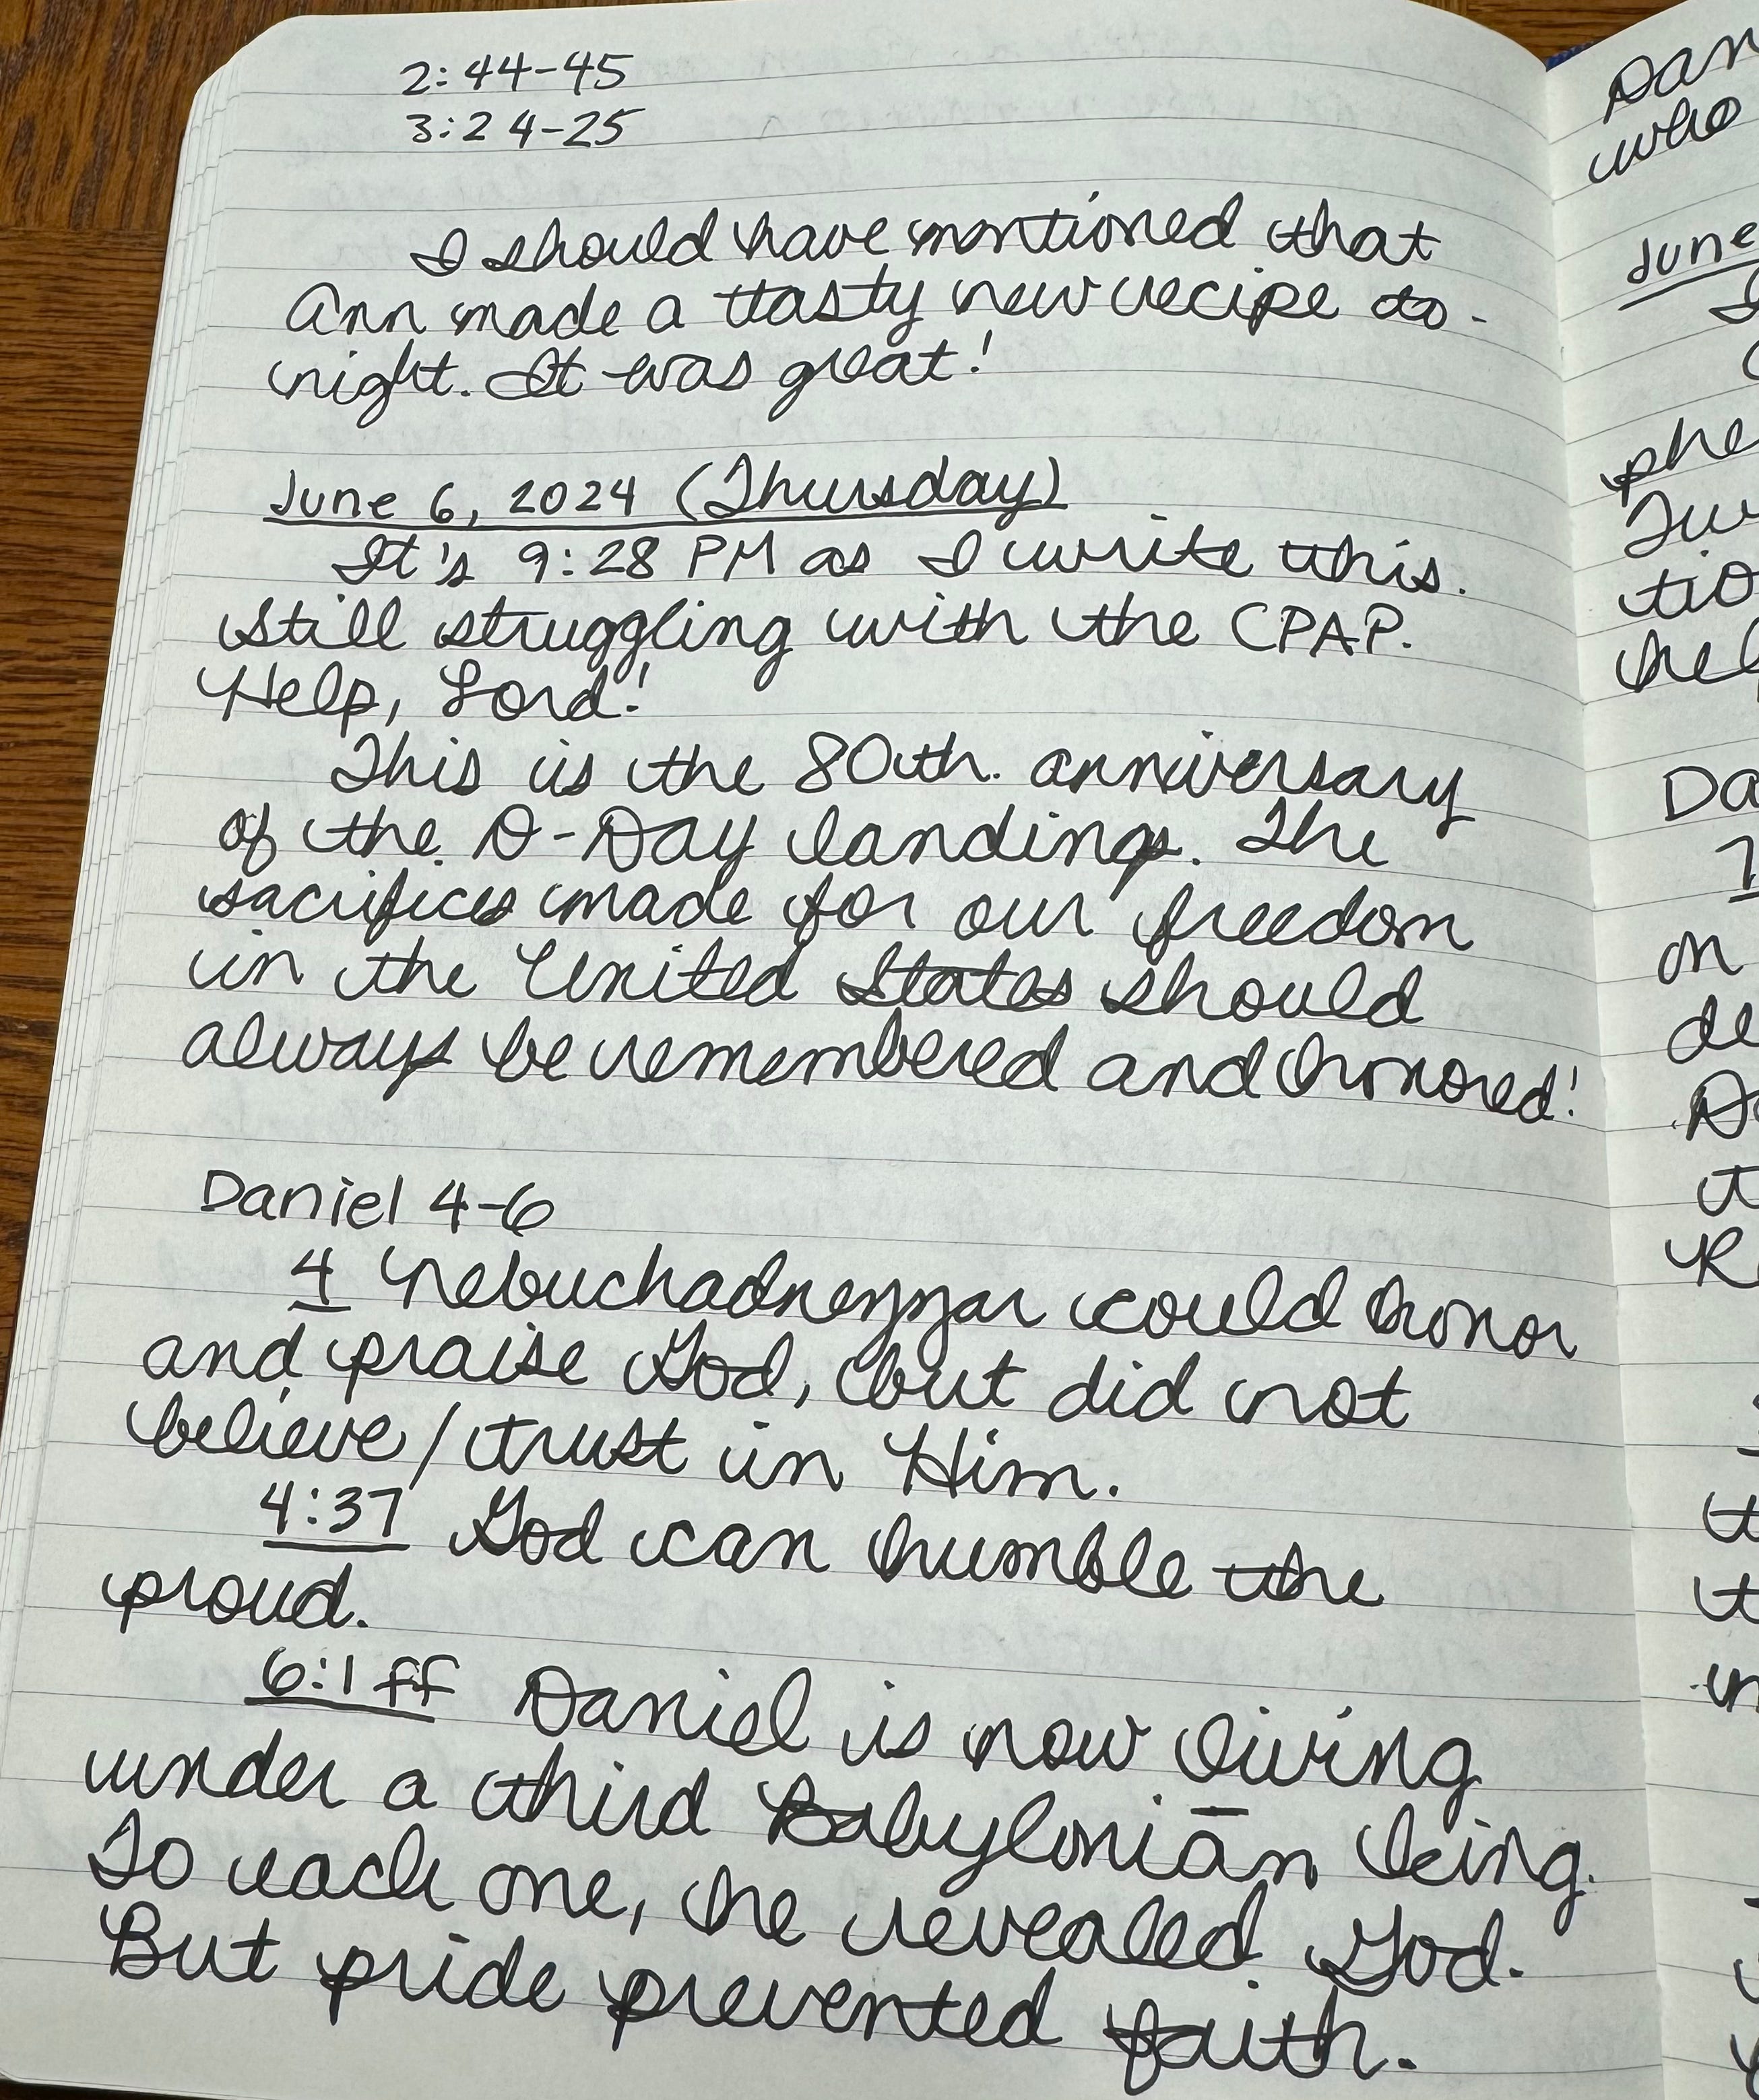 2:44-45
3:24-25
I should have mentioned that
Ann made a tasty new recipe to-
night. It was great!
June 6, 2024 (Thursday)
It's 9:28 PM as I write this.
Still struggling with the CPAP.
Help, Lord!
This is the 80th anniversary
of the D-Day landings. The
sacrifices made for our freedom
in the United States should
always be remembered and honored!
Daniel 4-6
4 Nebuchadnezzar could honor
and praise God, but did not
believe/trust in Him.
4:37 God can humble the
proud.
6:1ff Daniel is now living
under a third Babylonian king.
To each one, he revealed God.
But pride prevented faith.
who
June
Da
on
de